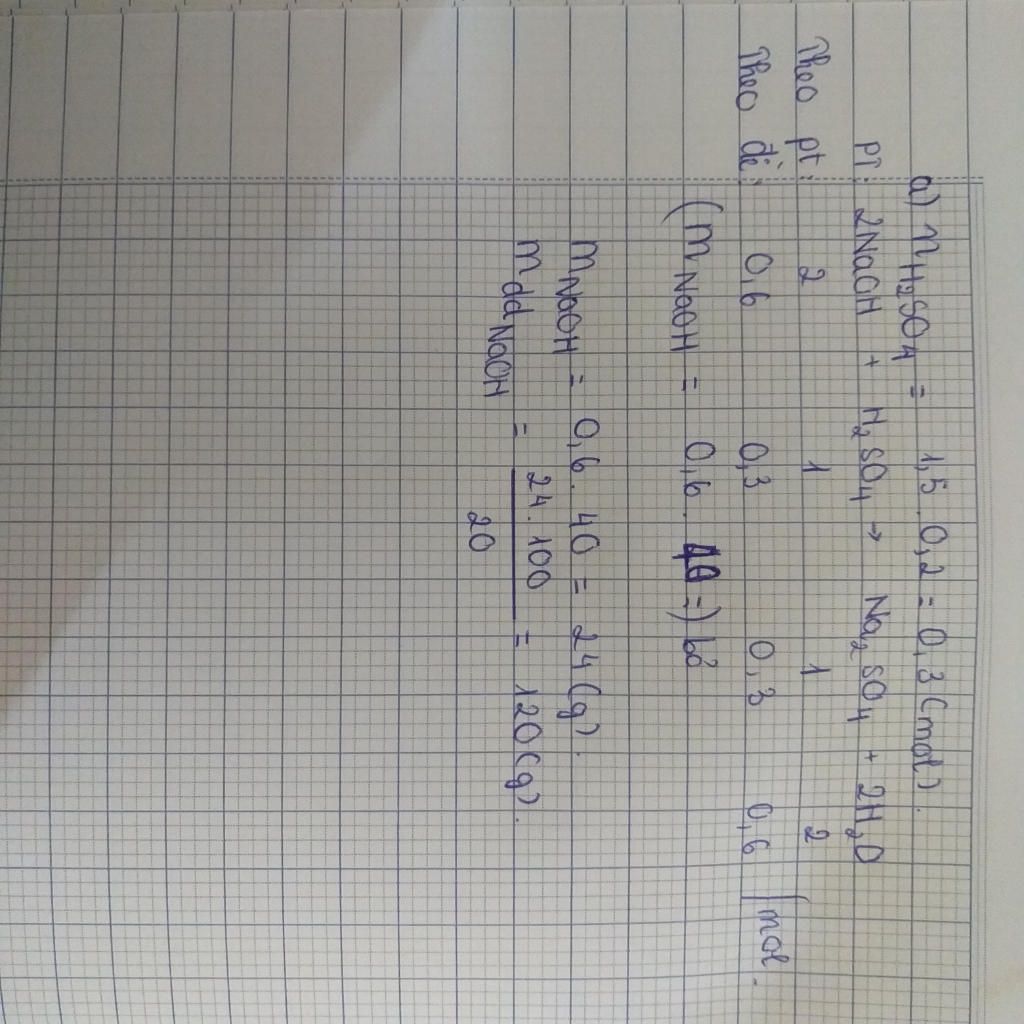 a) nH₂SO₄ = 1,5 . 0,2 = 0,3 (mol).
PT: 2NaOH + H₂SO₄ → Na₂SO₄ + 2H₂O
Theo pt: 2 1 1 2
Theo đề: 0,6 0,3 0,3 0,6 | mol.
(mNaOH = 0,6 . 40 =) bỏ
mNaOH = 0,6 . 40 = 24 (g).
mddNaOH = 24 . 100 / 20 = 120 (g).